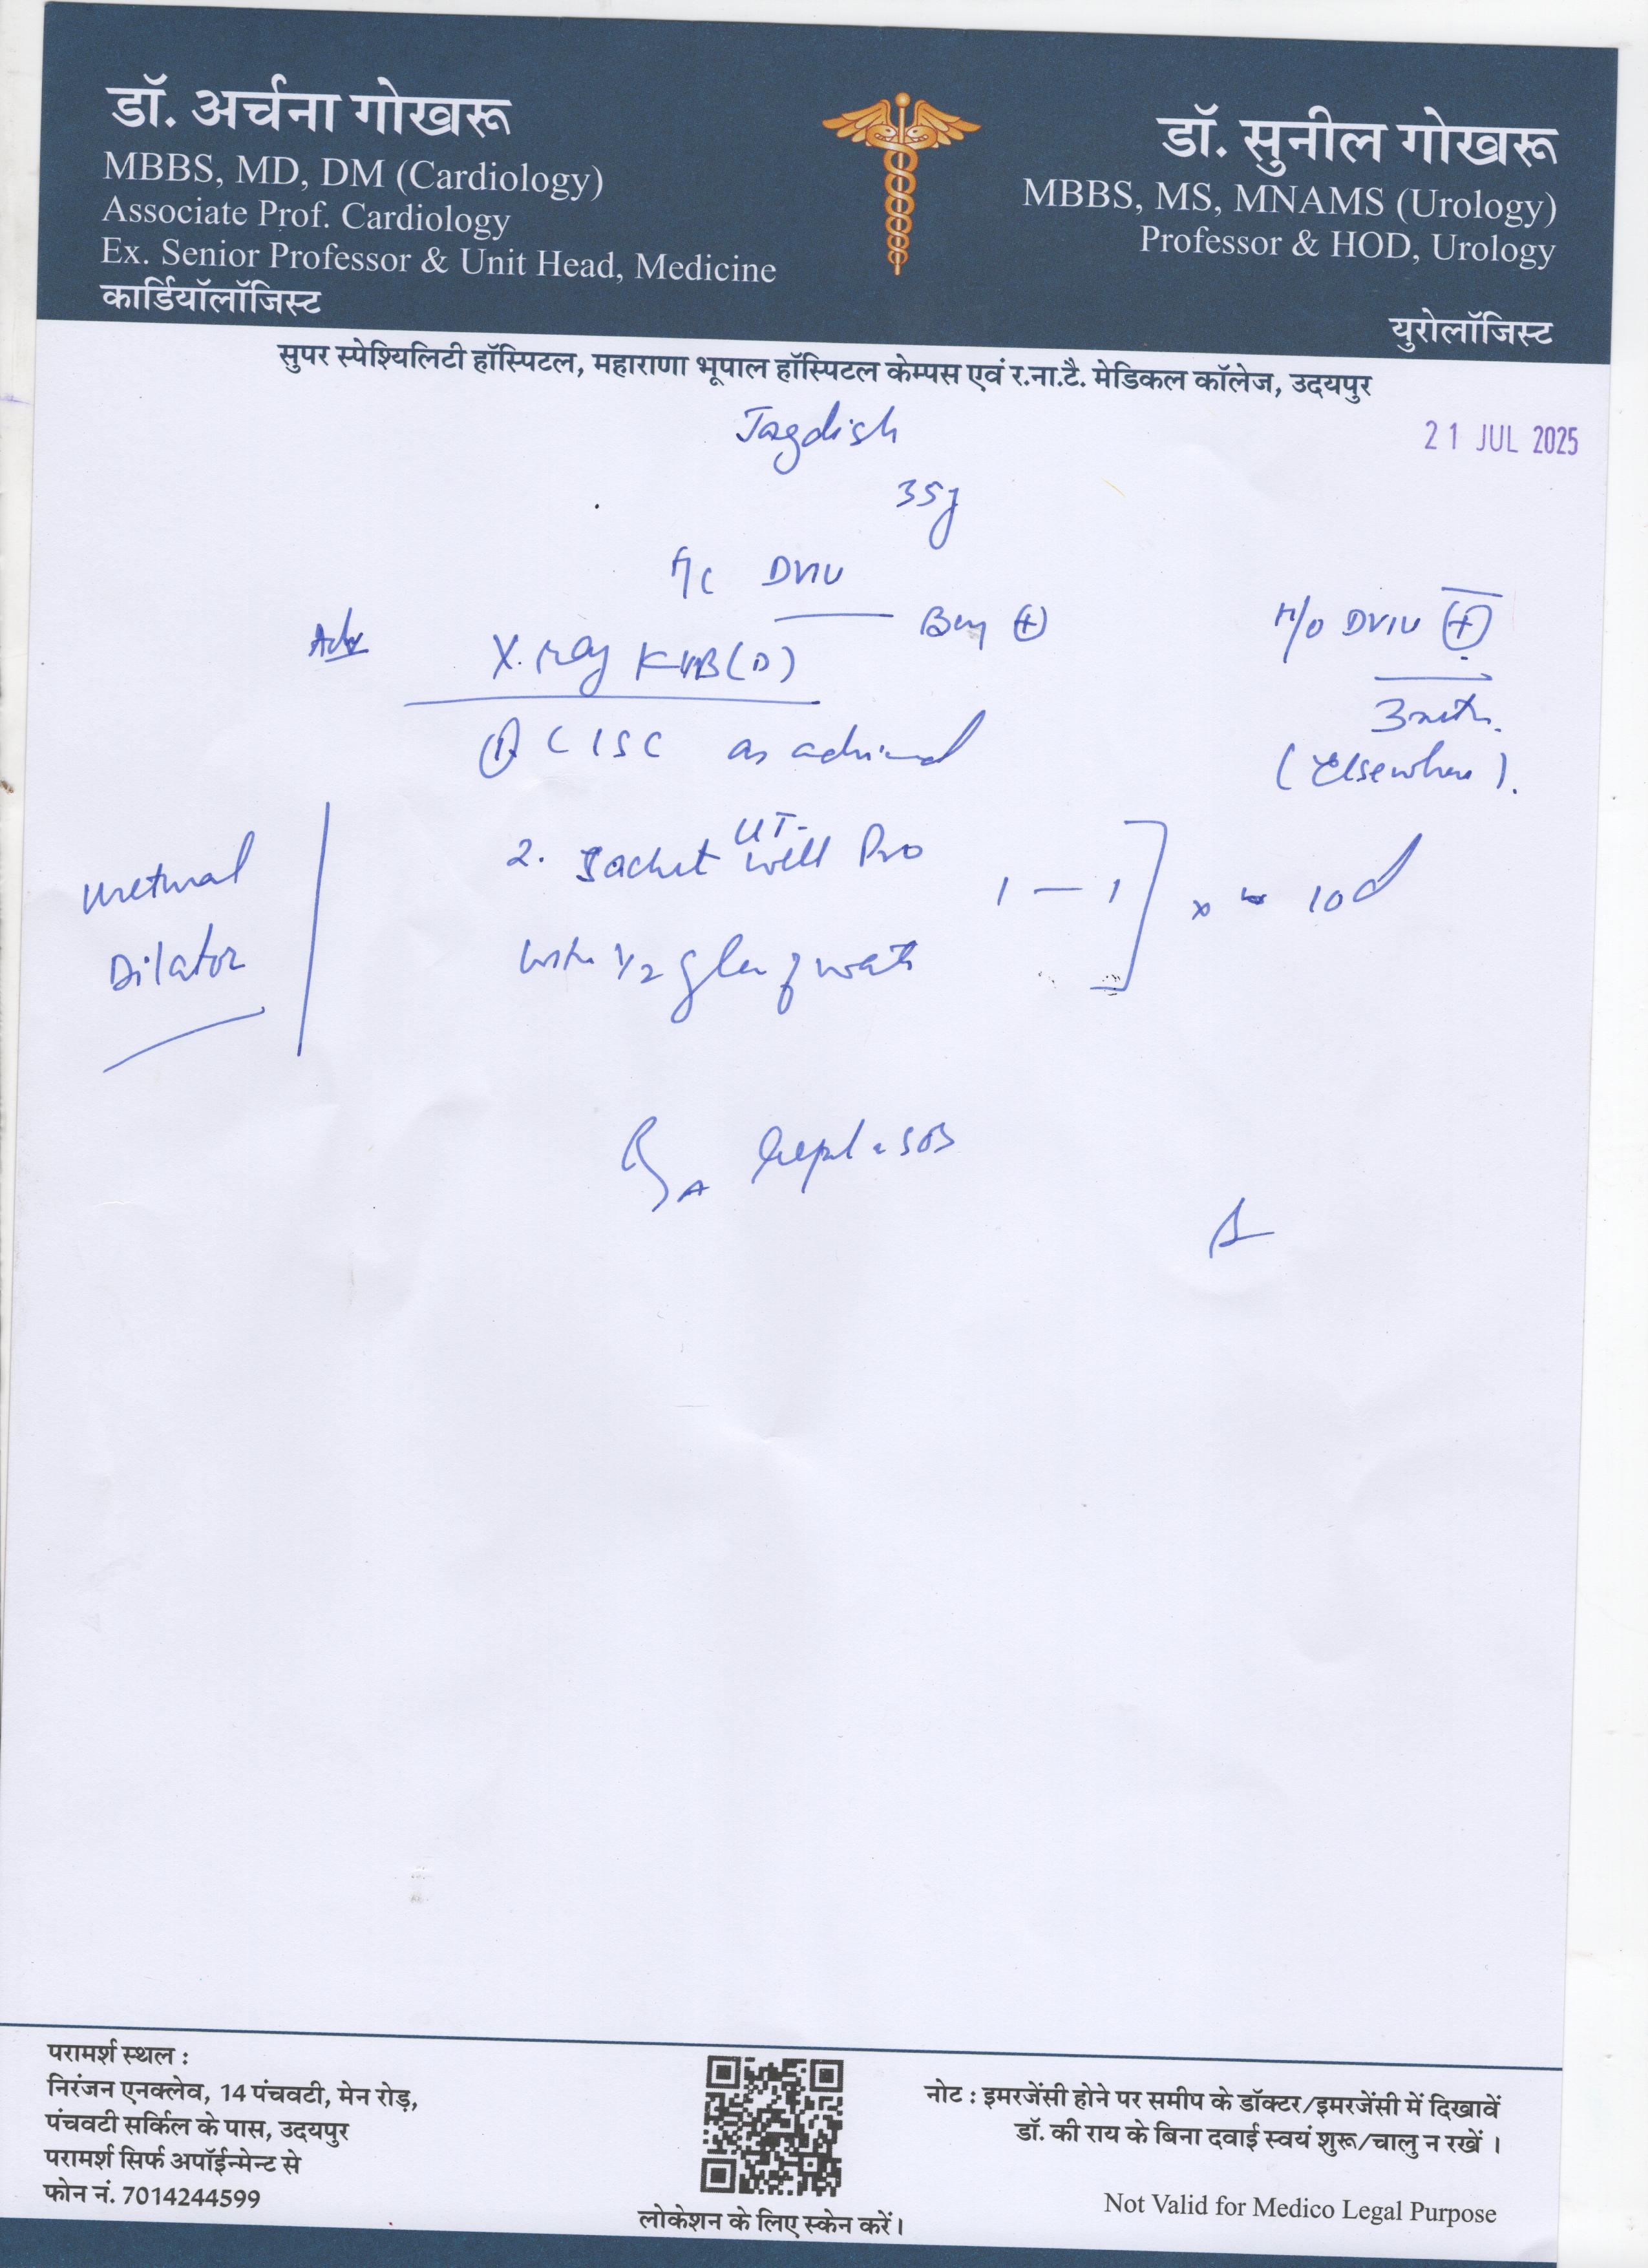 डॉ. अर्चना गोखरू
MBBS, MD, DM (Cardiology)
Associate Prof. Cardiology
Ex. Senior Professor & Unit Head, Medicine
कार्डियॉलॉजिस्ट
डॉ. सुनील गोखरू
MBBS, MS, MNAMS (Urology)
Professor & HOD, Urology
युरोलॉजिस्ट
सुपर स्पेश्यिलिटी हॉस्पिटल, महाराणा भूपाल हॉस्पिटल केम्पस एवं र.ना.टै. मेडिकल कॉलेज, उदयपुर
21 JUL 2025
Jagdish
35y
DVIU
(+)
H/o DVIU (+)
Adv
X.ray KUB
(Elsewhere).
① CISC as advised
Urethral
Dilator
2. Sachet UT-Well Pro
1 — 1
x 10d
with 1/2 glass of water
SOS
परामर्श स्थल :
निरंजन एनक्लेव, 14 पंचवटी, मेन रोड़,
पंचवटी सर्किल के पास, उदयपुर
परामर्श सिर्फ अपॉईन्मेन्ट से
फोन नं. 7014244599
लोकेशन के लिए स्केन करें।
नोट : इमरजेंसी होने पर समीप के डॉक्टर/इमरजेंसी में दिखावें
डॉ. की राय के बिना दवाई स्वयं शुरू/चालु न रखें ।
Not Valid for Medico Legal Purpose